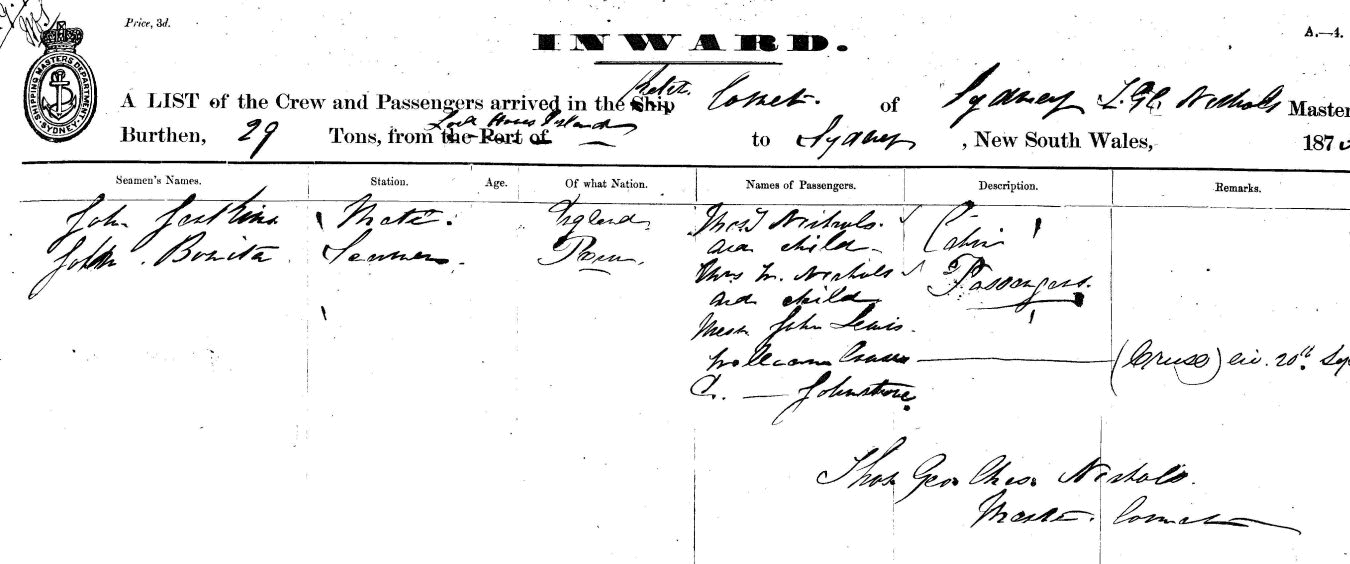 Price, 3d.
A.—4.
SHIPPING MASTERS DEPARTMENT. SYDNEY.
INWARD.
A LIST of the Crew and Passengers arrived in the Ship Ketch Comet. of Sydney T. G. C. Nichols Master
Burthen, 29 Tons, from the Port of Lord Howe Island to Sydney, New South Wales, 187
Seamen's Names. Station. Age. Of what Nation. Names of Passengers. Description. Remarks.
John Mate. England Mrs T Nichols. Cabin
John Bonita Seaman. Peru. and child
Mrs W. Nichols Passengers.
and child
John Lewis.
William Cruse (Cruse) 20th Sep
C. — Johnstone.
Thos Geo Chas Nichols.
Master. Comet